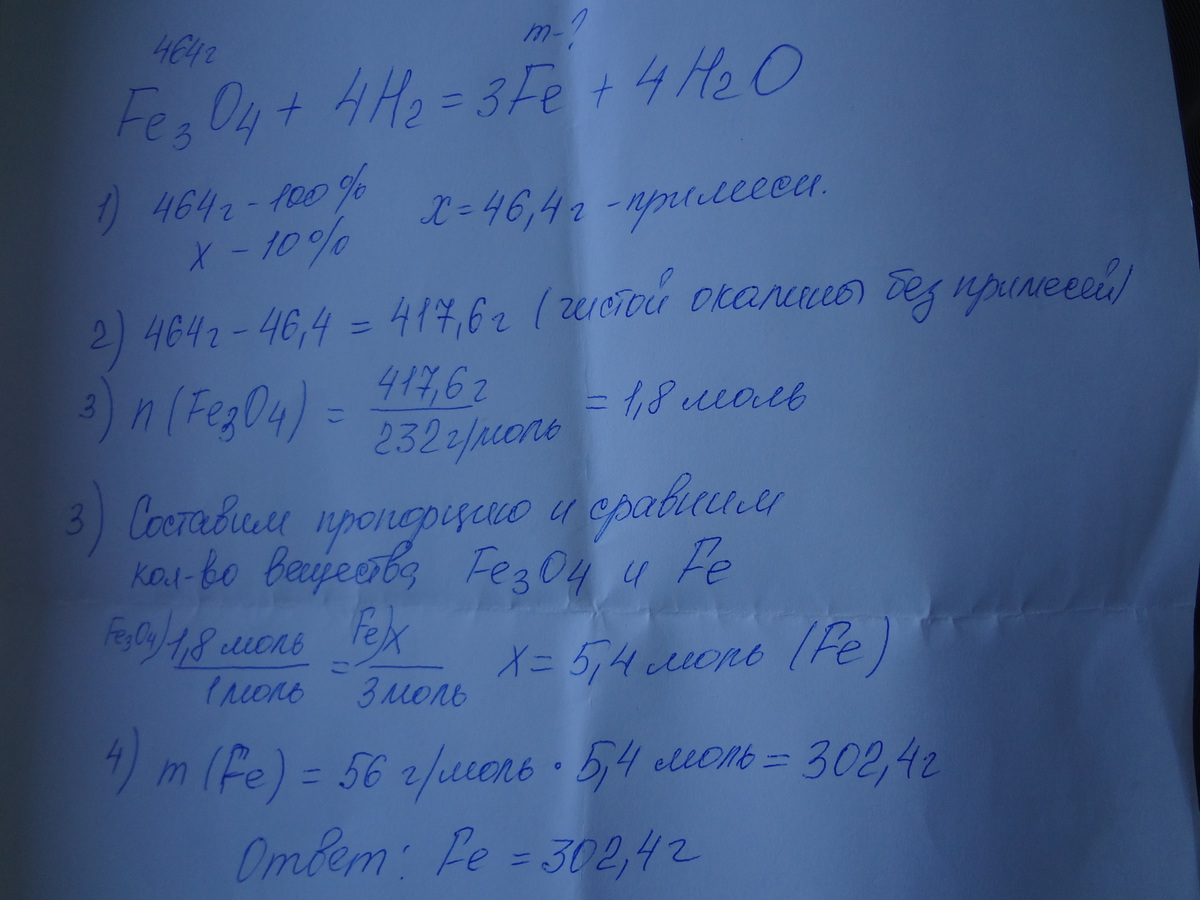 464г m-?
Fe3O4 + 4H2 = 3Fe + 4H2O
1) 464г - 100% x = 46,4г - примеси.
x - 10%
2) 464г - 46,4 = 417,6г (чистой окалины без примесей)
3) n (Fe3O4) = 417,6г / 232г/моль = 1,8 моль
3) Составим пропорцию и сравним
кол-во вещества Fe3O4 и Fe
Fe3O4) 1,8 моль / 1 моль = Fe) x / 3 моль x = 5,4 моль (Fe)
4) m (Fe) = 56 г/моль · 5,4 моль = 302,4г
Ответ: Fe = 302,4г